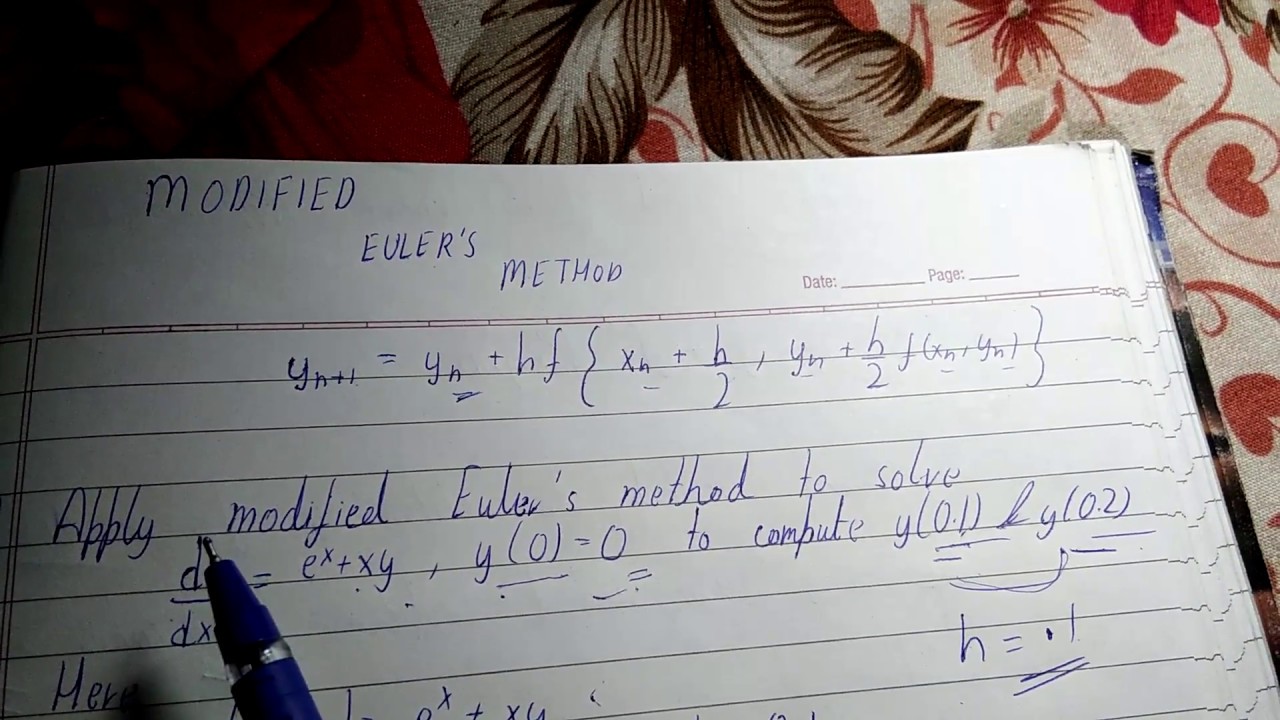 MODIFIED
EULER'S
METHOD
Date: ________ Page: _____
yn+1 = yn + hf { xn + h/2 , yn + h/2 f(xn, yn) }
Apply modified Euler's method to solve
d/dx = e^x + xy , y(0) = 0 to compute y(0.1) & y(0.2)
h = .1
Here
= e^x + xy